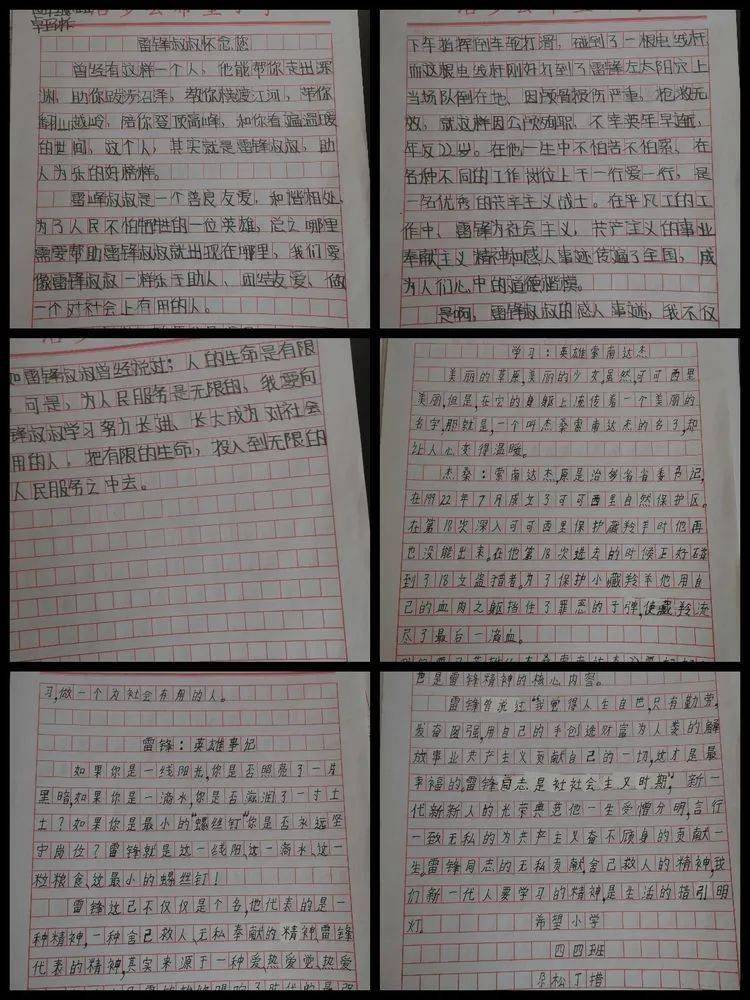 雷锋叔叔怀念您
曾经有这样一个人，他能帮你走出深
渊，助你跋涉沼泽，教你横渡江河，带你
翻山越岭，陪你登顶高峰，和你看遍温暖
的世间，这个人，其实就是雷锋叔叔，助
人为乐的好榜样。
雷峰叔叔是一个善良友爱，和谐相处，
为了人民不怕牺牲的一位英雄，总之哪里
需要帮助雷锋叔叔就出现在哪里，我们爱
像雷锋叔叔一样乐于助人、团结友爱、做
一个对社会上有用的人。
下午指挥倒车轮打滑，碰到了一根电线杆
而这根电线杆刚好打到了雷锋左太阳穴上
当场队倒在地、因颅骨被伤严重，抢救无
效，就这样因公殉职，不幸英年早逝，
年仅22岁。在他一生中不怕苦不怕累，在
各种不同的工作岗位上干一行爱一行，是
一名优秀的共产主义战士。在平凡工的工
作中、雷锋为社会主义，共产主义的事业
奉献主义精神和感人事迹传遍了全国，成
为人们心中的道德楷模。
是啊，雷锋叔叔的感人事迹，我不仅
如雷锋叔叔曾经说过；人的生命是有限
，可是，为人民服务是无限的，我要向
锋叔叔学习努力长进、长大成为对社会
用的人，把有限的生命，投入到无限的
人民服务之中去。
学习：英雄索南达杰
美丽的草原，美丽的少女虽然，可可西里
美丽，但是，在它的身躯上流传着一个美丽的
名字，那就是，一个叫杰桑索南达杰的名字，却
让人心变得温暖。
杰桑：索南达杰，原是治多县省委书记，
在1992年7月成立了可可西里自然保护区。
在第18次深入可可西里保护藏羚羊时他再
也没能出来。在他第18次进去的时候正好碰
到了18女盗猎者。为了保护小藏羚羊他用自
己的血肉之躯挡住了罪恶的子弹，使藏羚流
尽了最后一滴血。
习，做一个为社会有用的人。
雷锋：英雄事记
如果你是一线阳光，你是否照亮了一片
黑暗，如果你是一滴水，你是否滋润了一寸土
土？如果你是最小的“螺丝钉”你是否永远坚
守岗位？雷锋就是这一线阳、这一滴水、这一
粒粮食、这最小的螺丝钉！
雷锋这已不仅仅是个名，他代表的是一
种精神，一种舍己救人、无私奉献的精神，雷锋
代表的精神，其实来源于一种爱、热爱党、热爱
色是雷锋精神的核心内容。
雷锋曾说过“我觉得人生自也，只有勤劳，
发奋图强，用自己的手创造财富为人类的解
放事业共产主义贡献自己的一切，这才是最
幸福的。雷锋同志是社社会主义时期“新一
代新新人的光荣典范他一生爱憎分明，言行
一致无私的为共产主义奋不顾身的贡献一
生。雷锋同志的无私贡献，舍己救人的精神，我
们新一代人要学习的精神，是生活的指引明
灯。
希望小学
四四班
尕松丁措